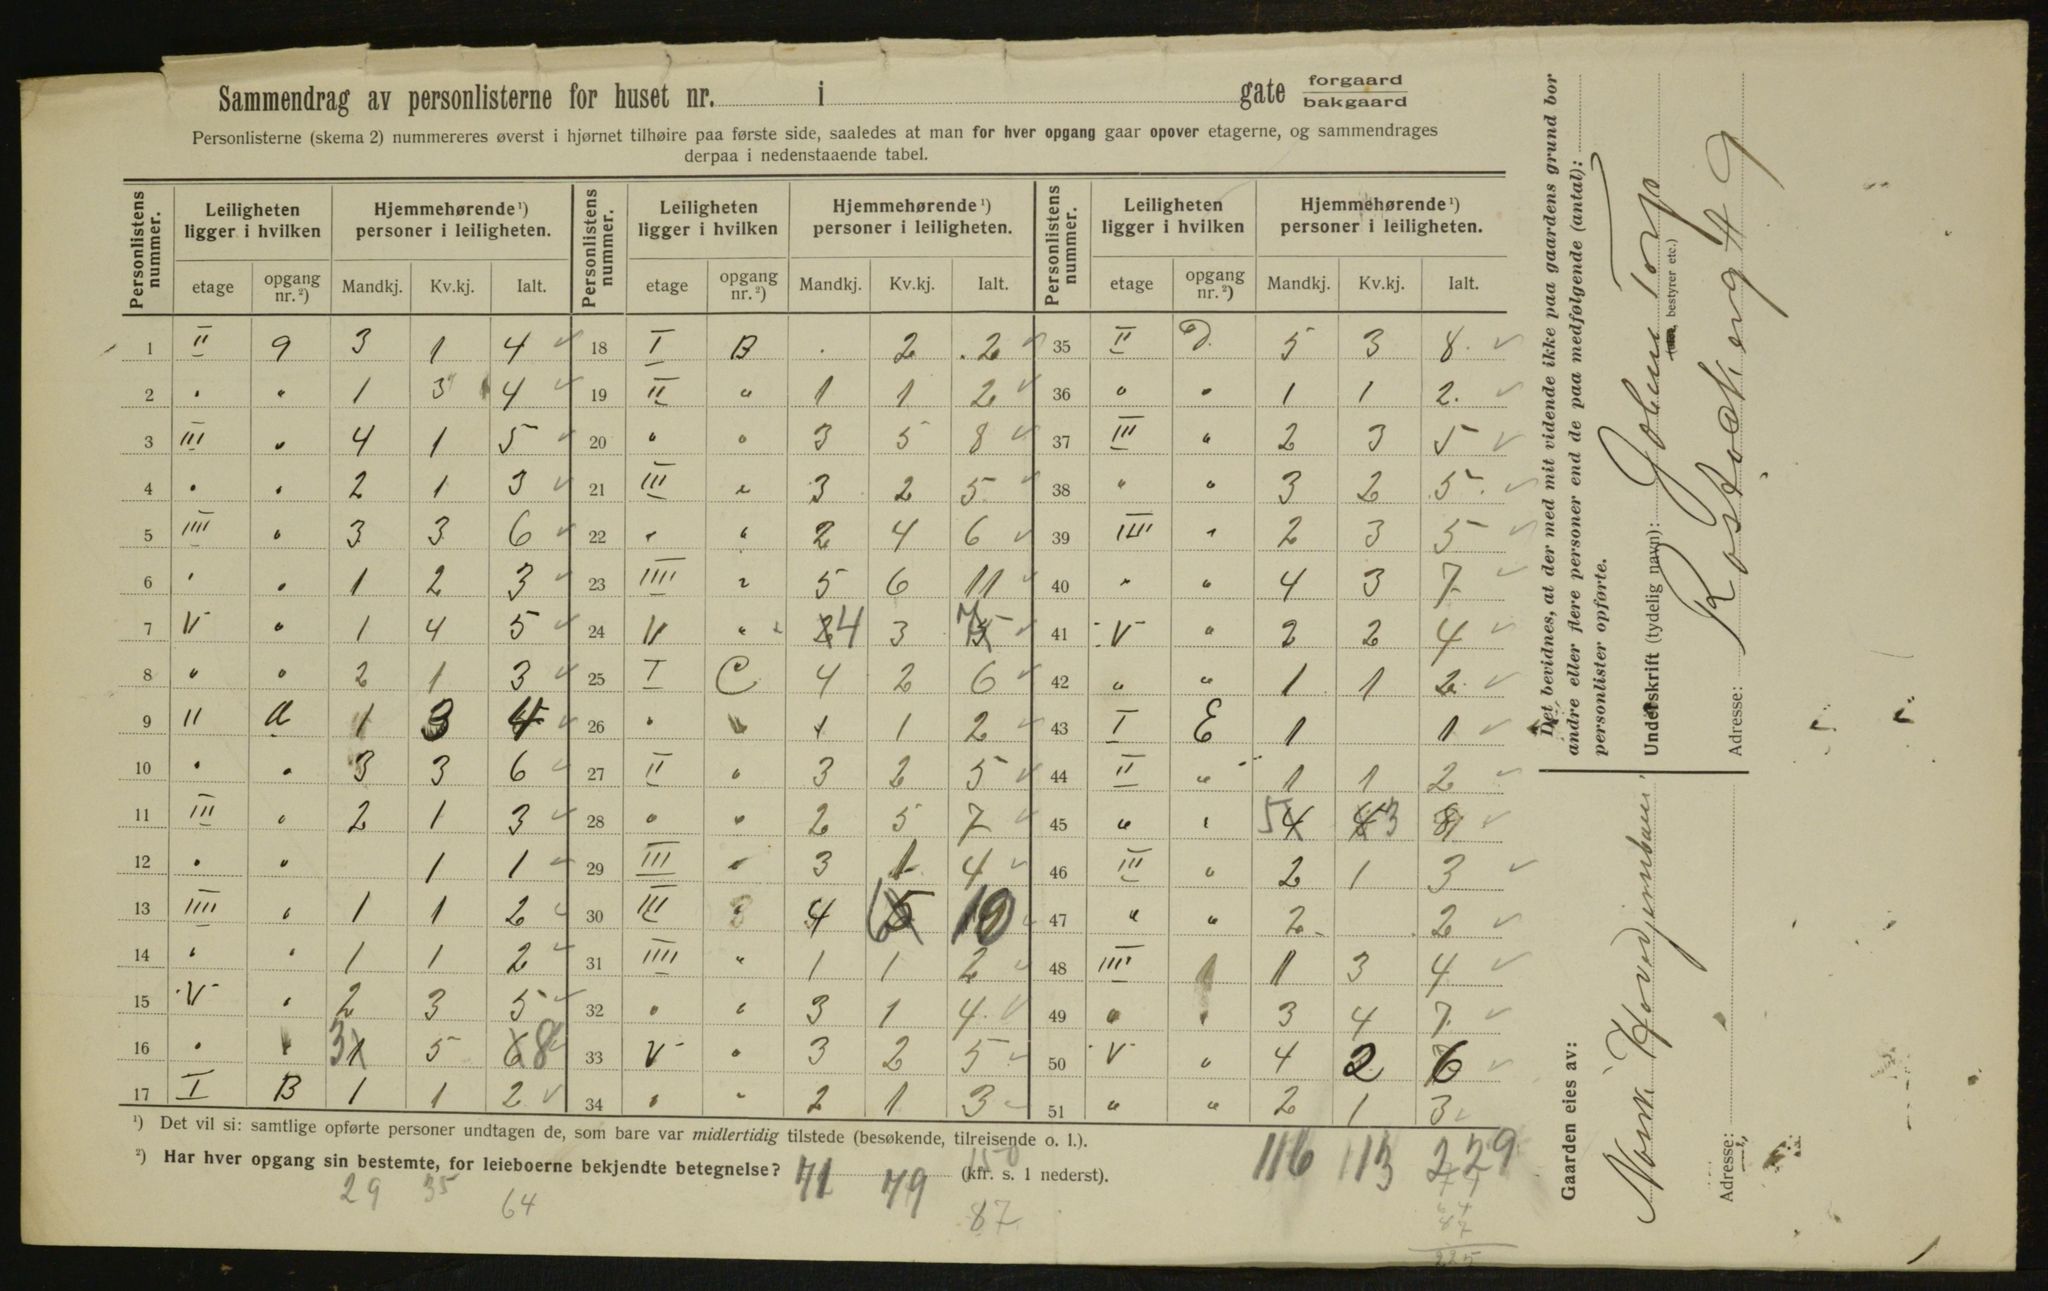 Sammendrag av personlisterne for huset nr. i gate forgaard bakgaard
Personlisterne (skema 2) nummereres øverst i hjørnet tilhøire paa første side, saaledes at man for hver opgang gaar opover etagerne, og sammendrages
derpaa i nedenstaaende tabel.
Personlistens nummer. Leiligheten ligger i hvilken Hjemmehørende ¹) personer i leiligheten. Personlistens nummer. Leiligheten ligger i hvilken Hjemmehørende ¹) personer i leiligheten. Personlistens nummer. Leiligheten ligger i hvilken Hjemmehørende ¹) personer i leiligheten.
etage opgang nr. ²) Mandkj. Kv.kj. Ialt. etage opgang nr. ²) Mandkj. Kv.kj. Ialt. etage opgang nr. ²) Mandkj. Kv.kj. Ialt.
1 II a 3 1 4 18 I B . 2 2 35 II D 5 3 8
2 " " 1 3 4 19 II " 1 1 2 36 " " 1 1 2
3 III " 4 1 5 20 " " 3 5 8 37 III " 2 3 5
4 " " 2 1 3 21 III " 3 2 5 38 " " 3 2 5
5 IIII " 3 3 6 22 " " 2 4 6 39 IIII " 2 3 5
6 " " 1 2 3 23 IIII " 5 6 11 40 " " 4 3 7
7 V " 1 4 5 24 V " 4 3 7 41 V " 2 2 4
8 " " 2 1 3 25 I C 4 2 6 42 " " 1 1 2
9 II a 1 3 4 26 " " 1 1 2 43 I E 1 1
10 " " 3 3 6 27 II " 3 2 5 44 II " 1 1 2
11 III " 2 1 3 28 " " 2 5 7 45 " " 5 4 4 3 8
12 " " 1 1 29 III " 3 1 4 46 III " 2 1 3
13 IIII " 1 1 2 30 III " 4 6 5 10 47 " " 2 2
14 " " 1 1 2 31 IIII " 1 1 2 48 IIII 1 3 4
15 V " 2 3 5 32 " " 3 1 4 49 " " 3 4 7
16 " " 3 1 5 6 8 33 V " 3 2 5 50 V " 4 2 6
17 I B 1 1 2 34 " " 2 1 3 51 " " 2 1 3
¹) Det vil si: samtlige opførte personer undtagen de, som bare var midlertidig tilstede (besøkende, tilreisende o. l.).
²) Har hver opgang sin bestemte, for leieboerne bekjendte betegnelse? (kfr. s. 1 nederst).
116 113 229
71 79 150
29 35 64
87
77
64
87
225
Det bevidnes, at der med mit vidende ikke paa gaardens grund bor
andre eller flere personer end de paa medfølgende (antal):
personlister opførte.
Underskrift (tydelig navn): Johan Torp
(eier, bestyrer etc.)
Adresse: Rostockergt 9
Gaarden eies av: Norsk Hovedjernbane
Adresse: